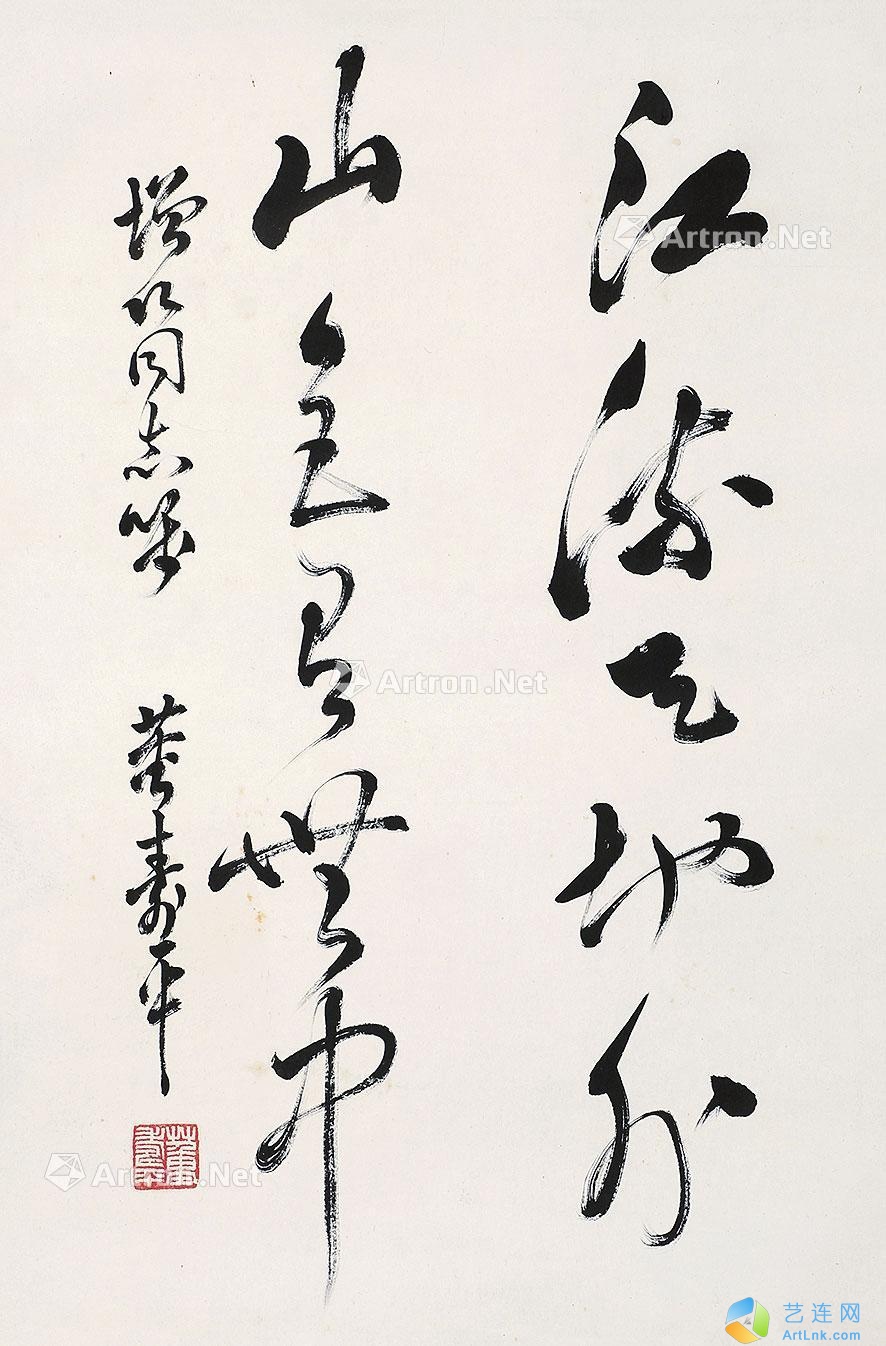 江流天地外
山色有無中
增同志嘱
董壽平
董壽平
Artron.Net
Artron.Net
Artron.Net
艺连网
ArtLnk.com